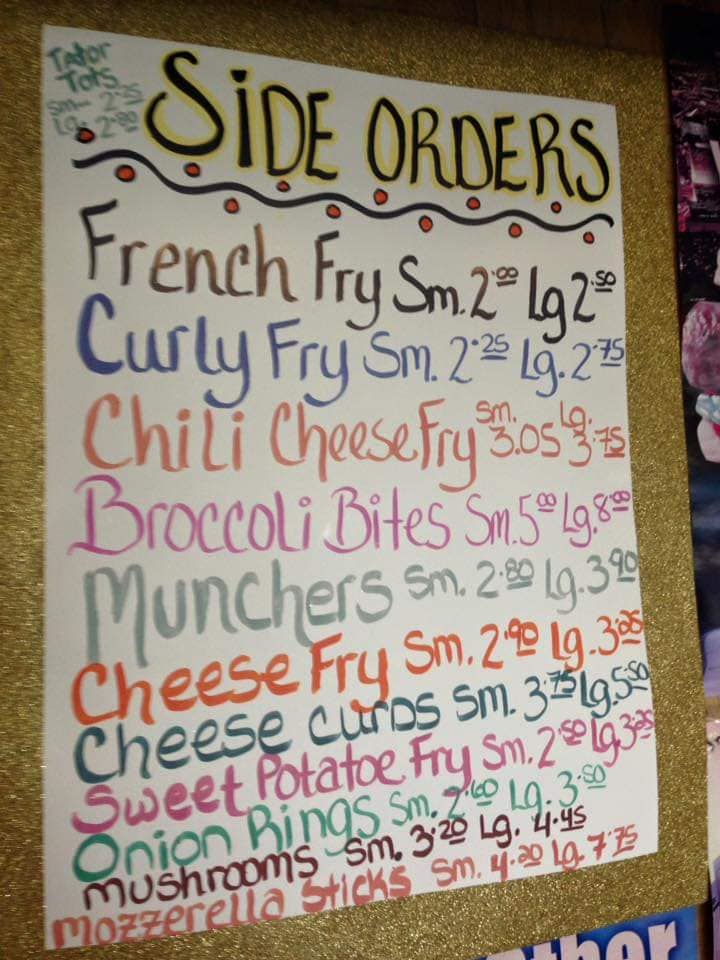 Tator
Tots
Sm- 2.25
Lg. 2.80
SiDE ORDERS
French Fry Sm. 2.00 Lg 2.50
Curly Fry Sm. 2.25 Lg. 2.75
Chili Cheese Fry Sm. 3.05 Lg. 3.75
Broccoli Bites Sm. 5.00 Lg. 8.00
Munchers Sm. 2.80 Lg. 3.90
Cheese Fry Sm. 2.90 Lg. 3.25
Cheese CURDS Sm. 3.75 Lg. 5.50
Sweet Potatoe Fry Sm. 2.50 Lg 3.25
Onion Rings Sm. 2.60 Lg. 3.50
mushrooms Sm. 3.20 Lg. 4.45
Mozzerella Sticks Sm. 4.20 Lg. 7.75